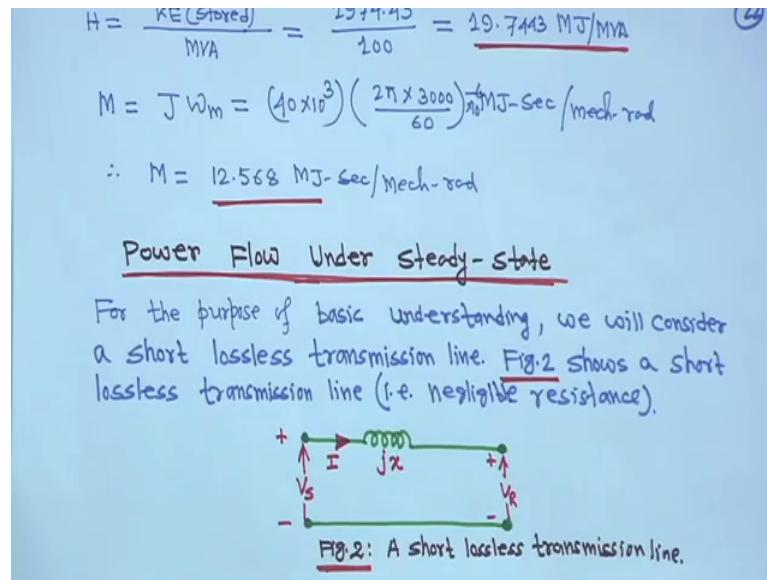 H = KE (Stored) / MVA = 1974.43 / 100 = 19.7443 MJ/MVA
M = J Wm = (40×10³) (2π × 3000 / 60) × 10⁻⁶ MJ-Sec/mech-rad
∴ M = 12.568 MJ-Sec/Mech-rad
Power Flow Under Steady-State
For the purpose of basic understanding, we will consider
a short lossless transmission line. Fig.2 shows a short
lossless transmission line (i.e. negligible resistance).
+ I jx +
Vs VR
- -
Fig.2: A short lossless transmission line.